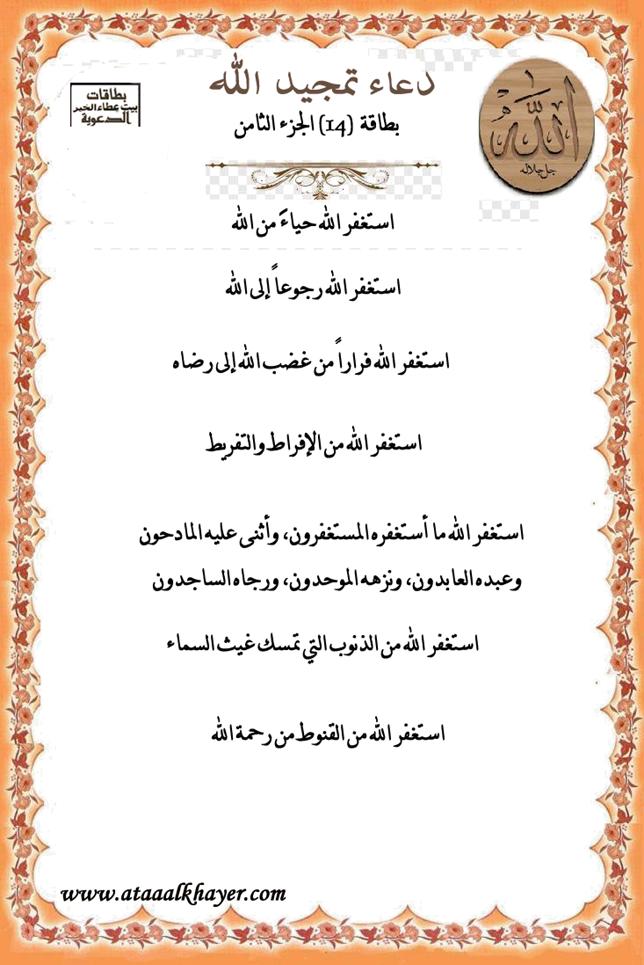 دعاء تمجيد الله
بطاقة (14) الجزء الثامن
بطاقات
بيت عطاء الخير
الدعوية
الله
جل جلاله
استغفر الله حياءً من الله
استغفر الله رجوعاً إلى الله
استغفر الله فراراً من غضب الله إلى رضاه
استغفر الله من الإفراط والتفريط
استغفر الله ما أستغفره المستغفرون، وأثنى عليه المادحون
وعبده العابدون، ونزهه الموحدون، ورجاه الساجدون
استغفر الله من الذنوب التي تمسك غيث السماء
استغفر الله من القنوط من رحمة الله
www.ataaalkhayer.com